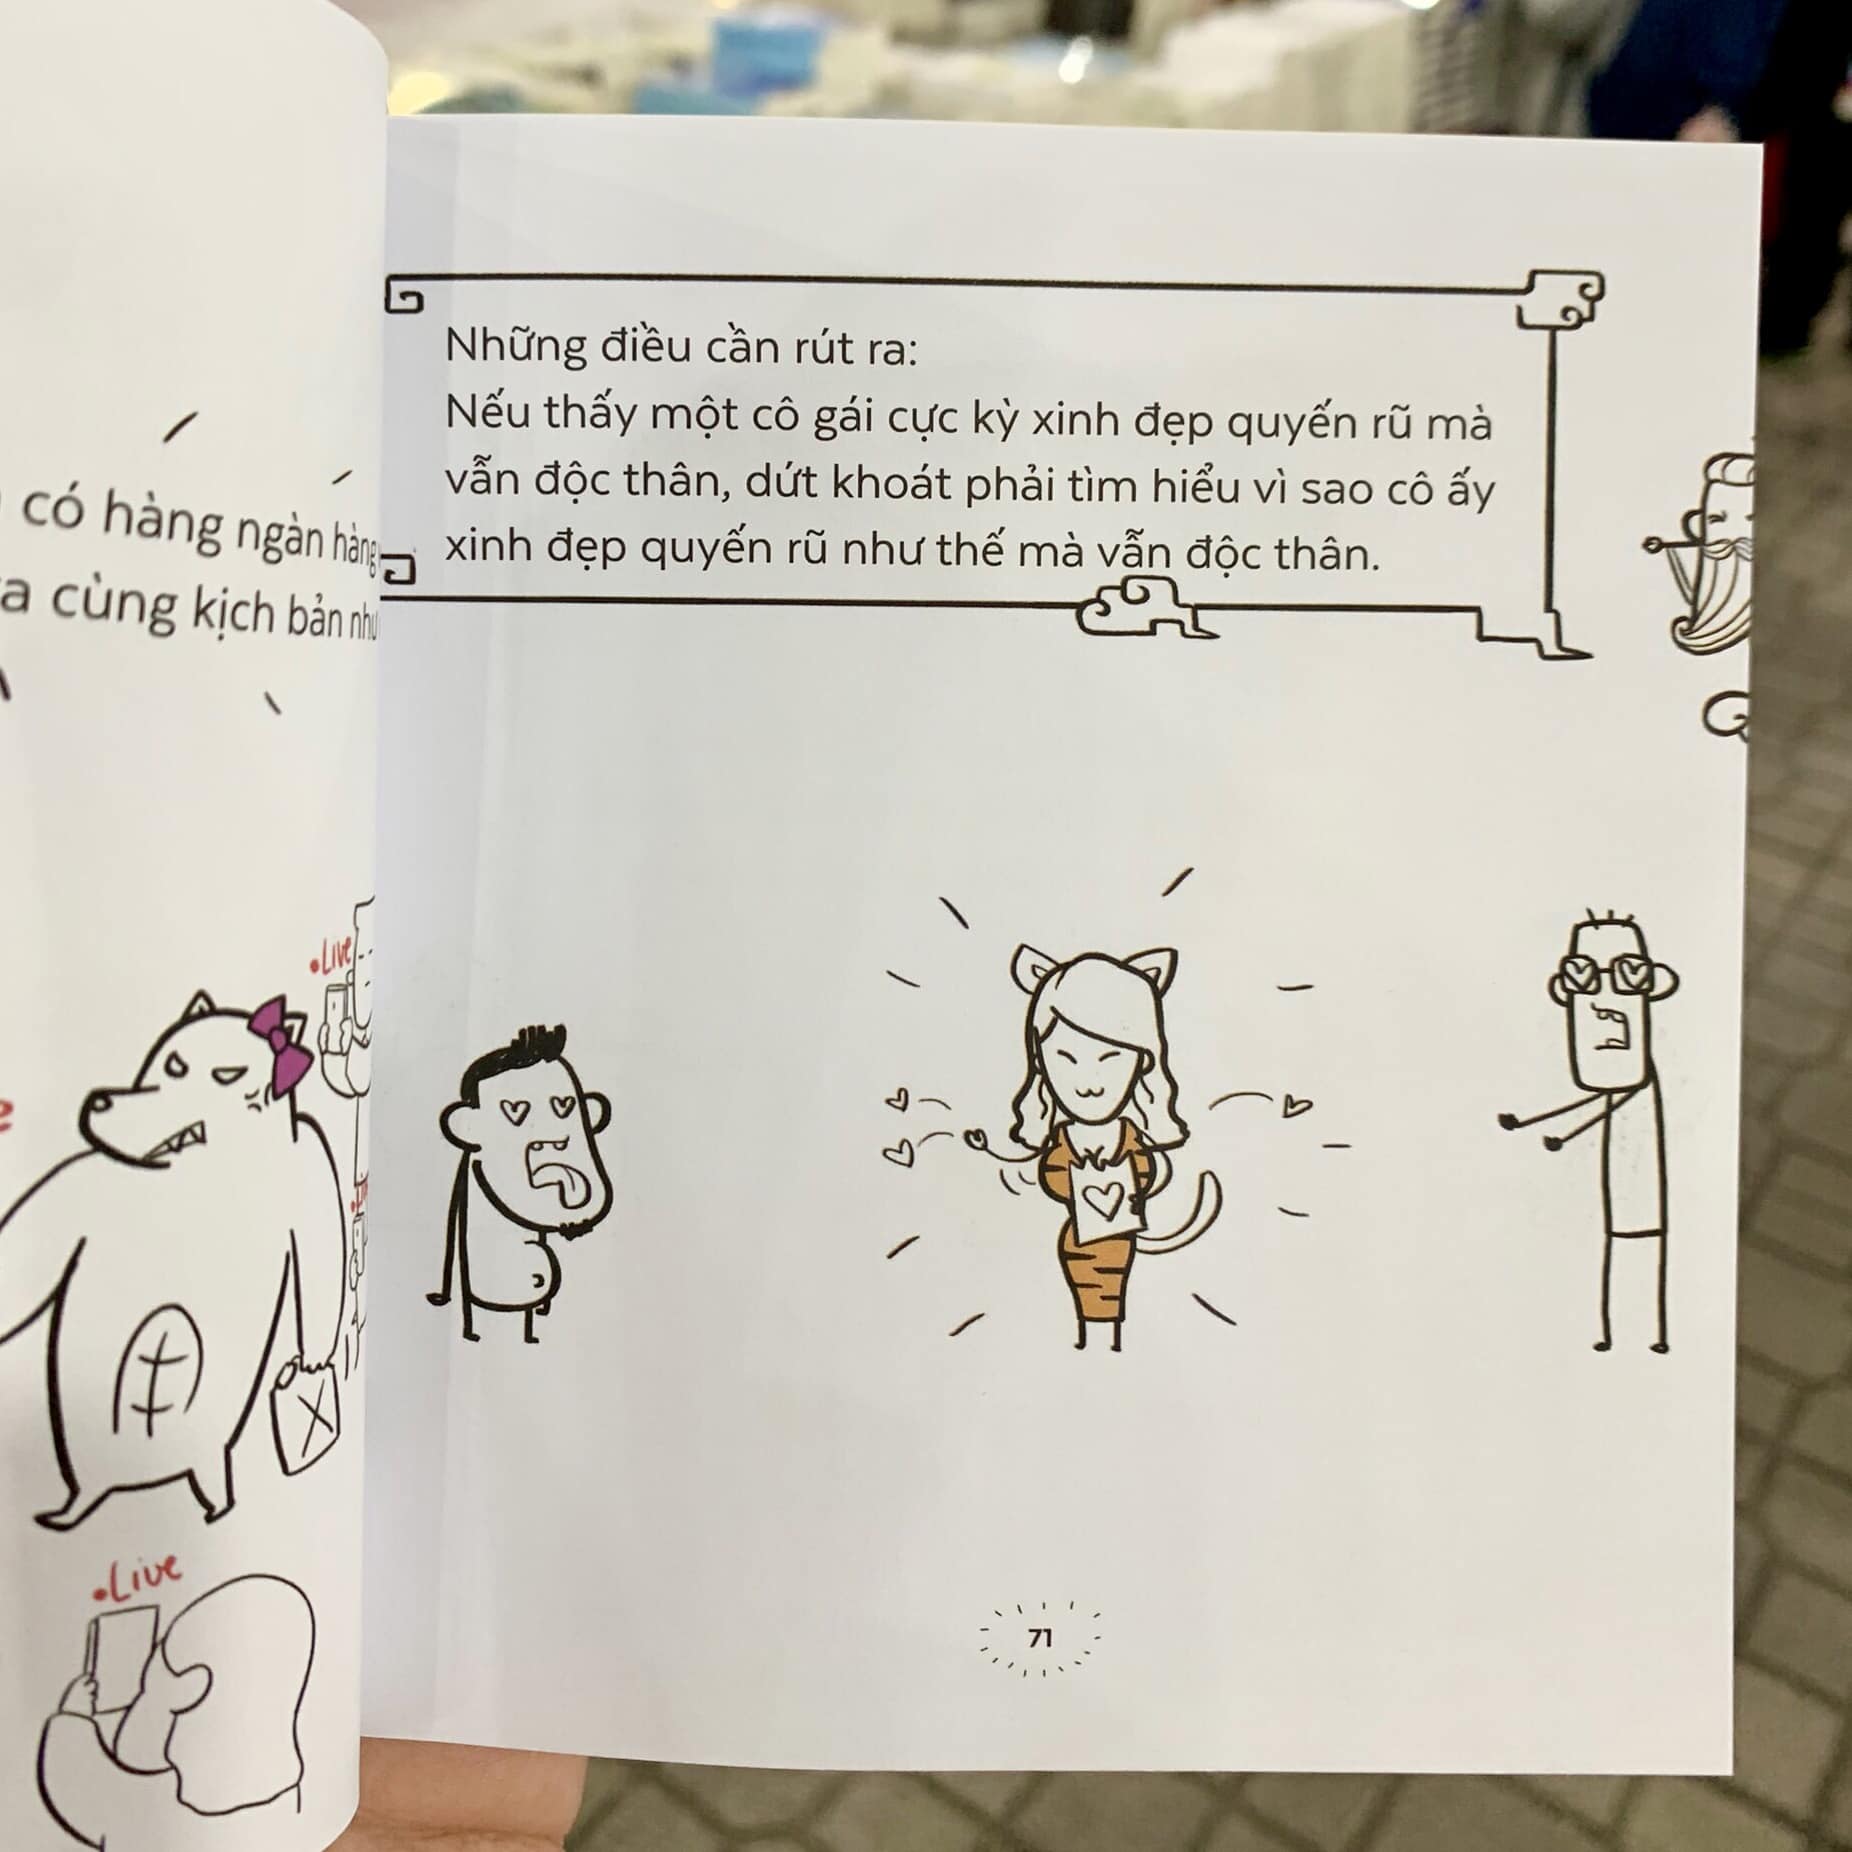 có hàng ngàn hàng
cùng kịch bản
Live
Live
Những điều cần rút ra:
Nếu thấy một cô gái cực kỳ xinh đẹp quyến rũ mà
vẫn độc thân, dứt khoát phải tìm hiểu vì sao cô ấy
xinh đẹp quyến rũ như thế mà vẫn độc thân.
71